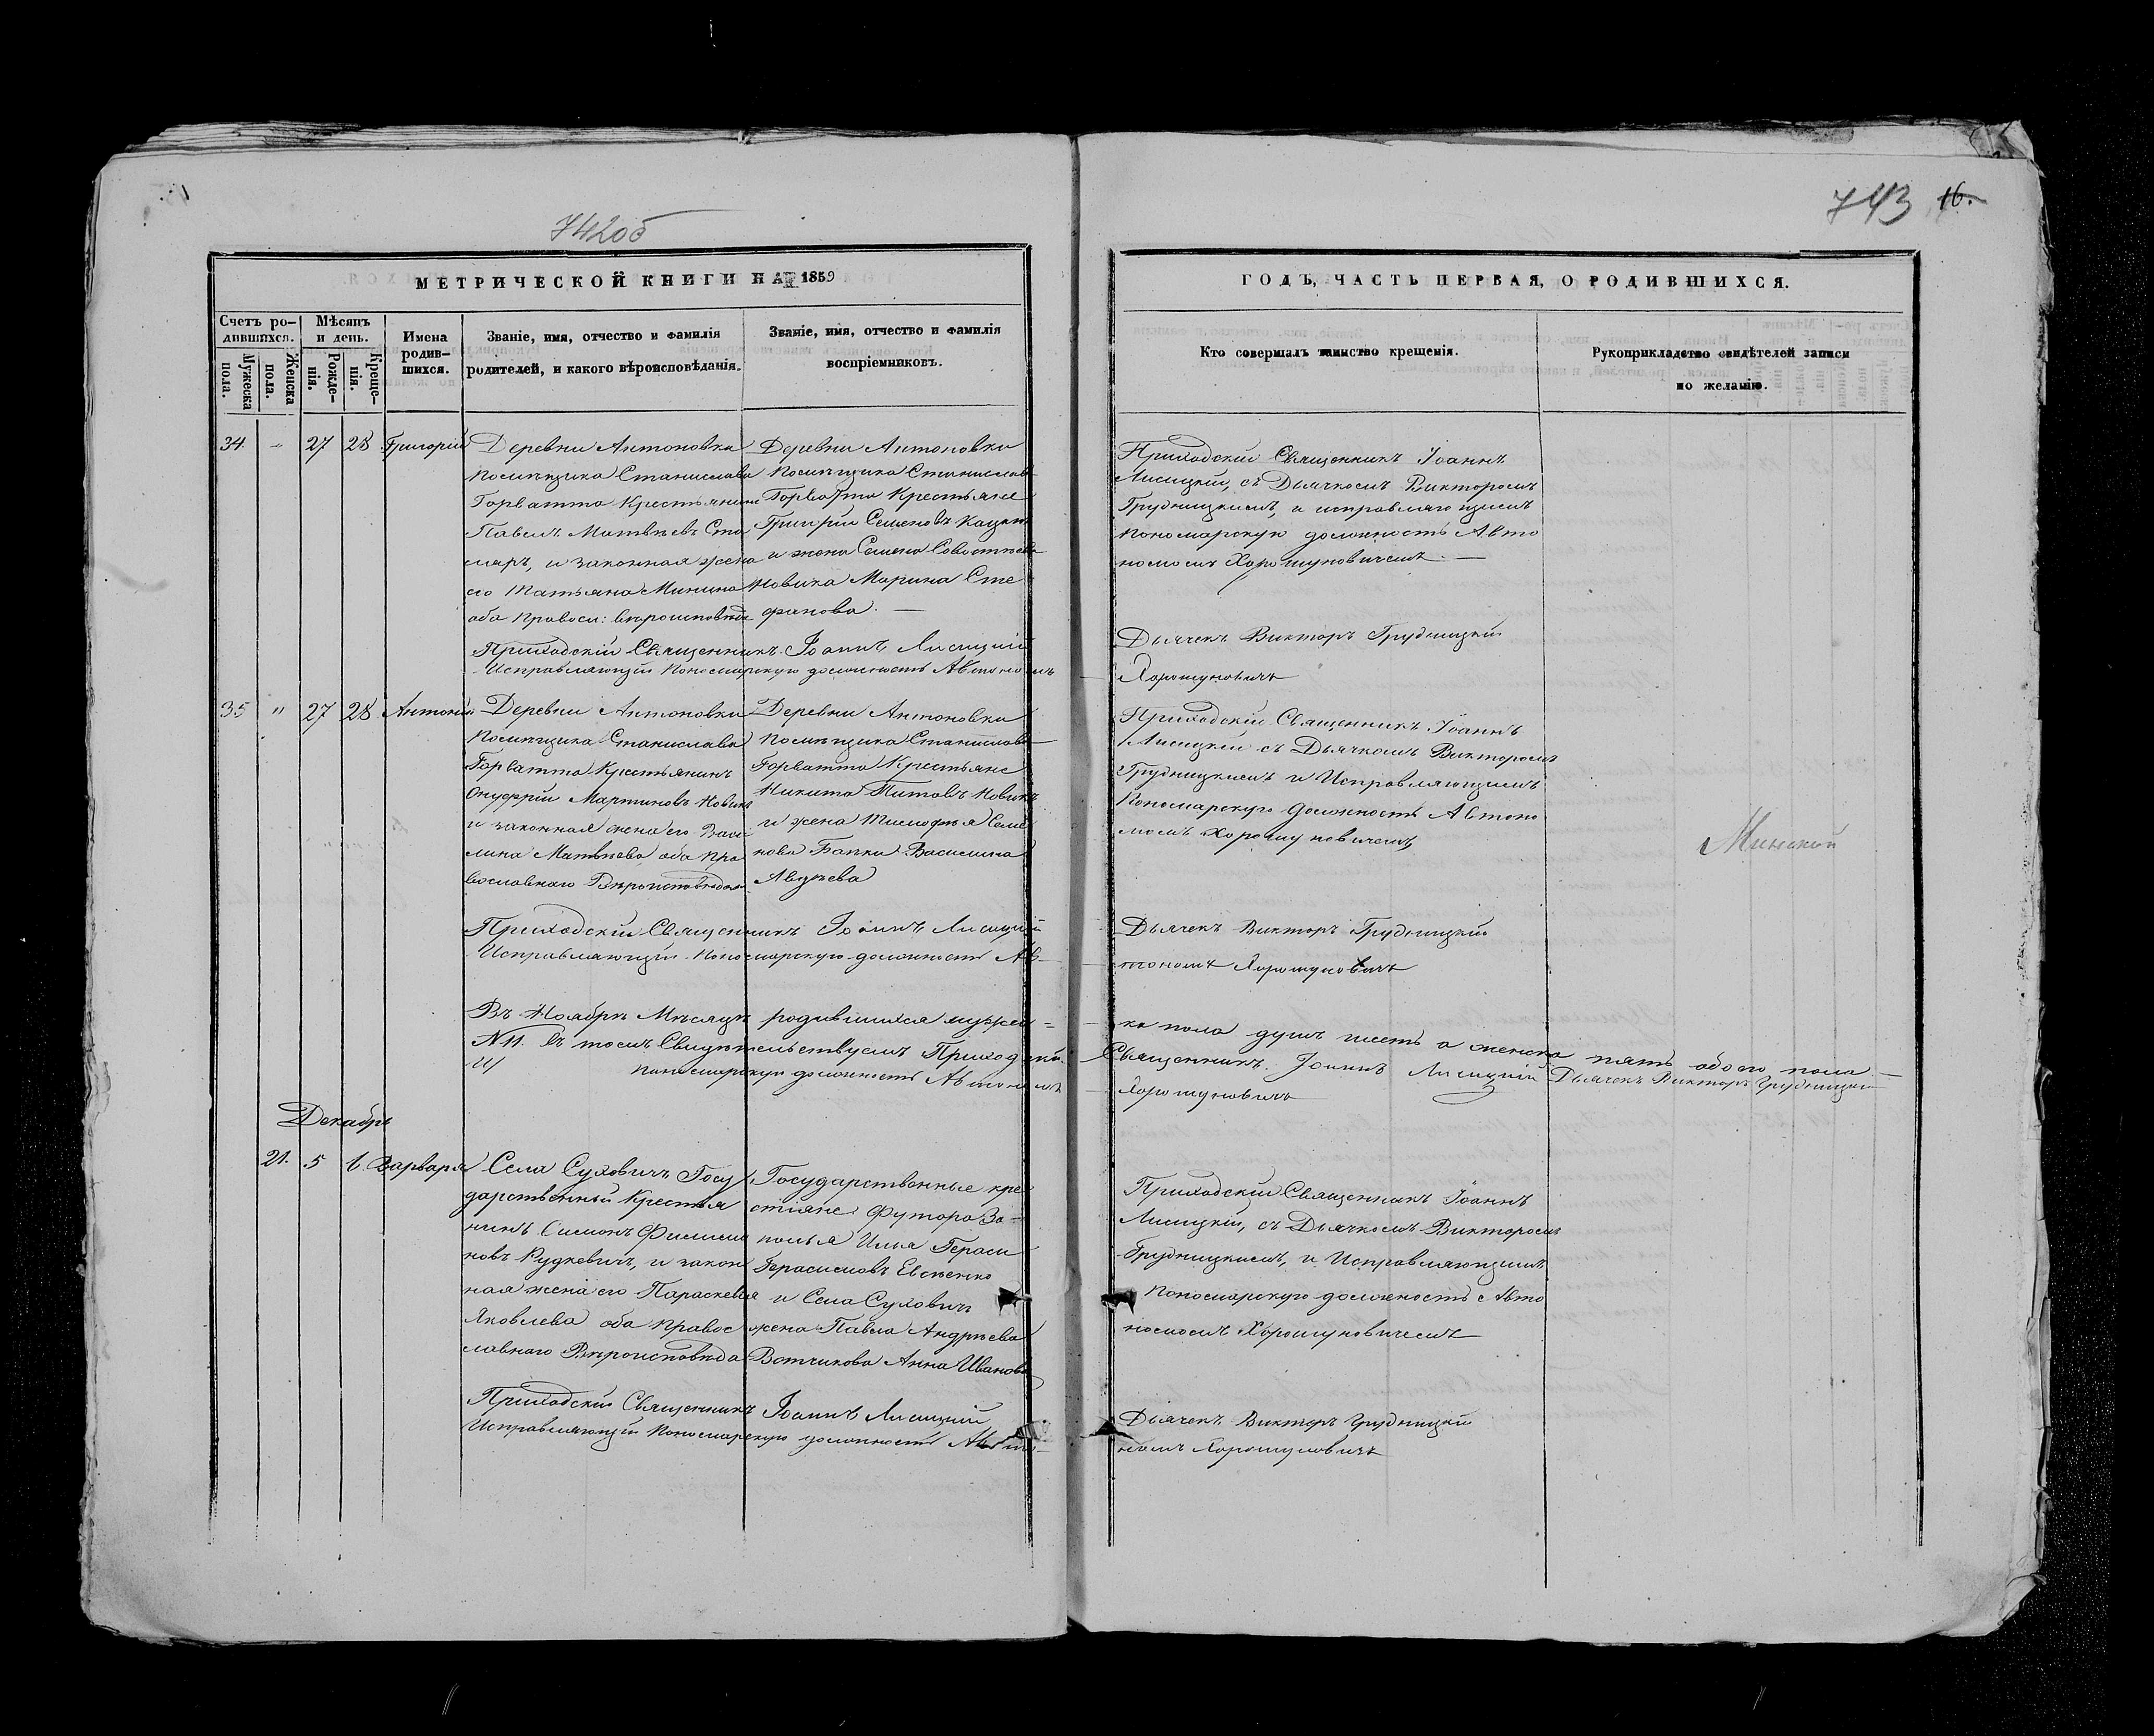 742об
743 16.
МЕТРИЧЕСКОЙ КНИГИ НА 1859
ГОДЪ, ЧАСТЬ ПЕРВАЯ, О РОДИВШИХСЯ.
Счетъ ро-
дившихся.
Мужеска
пола.
Женска
пола.
Мѣсяцъ
и день.
Рожде-
нія.
Креще-
нія.
Имена
родив-
шихся.
Званіе, имя, отчество и фамилія
родителей, и какого вѣроисповѣданія.
Званіе, имя, отчество и фамилія
воспріемниковъ.
Кто совершалъ таинство крещенія.
Рукоприкладство свидѣтелей записи
по желанію.
34 - 27 28 Григорій
Деревни Антоновки
Помѣщика Станислава
Горватта Крестьянинъ
Павелъ Матвѣевъ Сто
ляръ, и законная жена
его Татьяна Минина
оба Правосл: вѣроисповѣда
Деревни Антоновки
Помѣщика Станислава
Горватта Крестьяне
Григрій Семеновъ
и жена Семена
Новика Марина Сте
фанова. —
Приходскій Священникъ Іоаннъ
Лисицкій, съ Дьячкомъ Викторомъ
Грудницкимъ, и исправляющимъ
пономарскую должность Авто
номомъ Хорошуновичемъ. —
Приходскій Священникъ Іоаннъ Лисицкій
Дьячекъ Викторъ Грудницкій
Исправляющій Пономарскую должность Автономъ
Хорошуновичъ
35 " 27 28 Антоній
Деревни Антоновки
Помѣщика Станислава
Горватта Крестьянинъ
Онуфрій Мартиновъ Новикъ
и законная жена его Васи
лина Матвѣева оба Пра
вославнаго Вѣроисповѣдан
Деревни Антоновки
Помѣщика Станислава
Горватта Крестьяне
Никита Титовъ Новикъ
и жена Тимофея Семе
нова Бапки Василина
Авдѣева
Приходскій Священникъ Іоаннъ
Лисицкій съ Дьячкомъ Викторомъ
Грудницкимъ и Исправляющимъ
Пономарскую должность Автоно
момъ Хорошуновичемъ
Минский
Приходскій Священникъ Іоаннъ Лисицкій
Дьячекъ Викторъ Грудницкій
Исправляющій Пономарскую должность Ав-
тономъ Хорошуновичъ
Въ Ноябрѣ Мѣсяцѣ родившихся мужес=
ка пола душъ шесть а женска пять обоего пола —
N 11. въ томъ Свидѣтельствуемъ Приходскій
Священникъ Іоаннъ Лисицкій Дьячекъ Викторъ Грудницкій
И/ Пономарскую должность Автономъ
Хорошуновичъ
Декабрь
21. 5 6. Варвара
Села Суховичъ Госу
дарственный Крестья
нинъ Симонъ Филимо
новъ Рудкевичъ, и закон
ная жена его Параскевія
Яковлева оба правос
лавнаго Вѣроисповѣда
Государственные кре
стіяне Футора За=
полья Илья Гераси
Герасимовъ Евсѣенко
и Села Суховичъ
жена Павла Андрѣева
Вотчикова Анна Иванова
Приходскій Священникъ Іоаннъ
Лисицкій, съ Дьячкомъ Викторомъ
Грудницкимъ, и Исправляющимъ
Пономарскую должность Авто
номомъ Хорошуновичемъ
Приходскій Священникъ Іоаннъ Лисицкій
Дьячекъ Викторъ Грудницкій
Исправляющій Пономарскую должность Авто-
номъ Хорошуновичъ